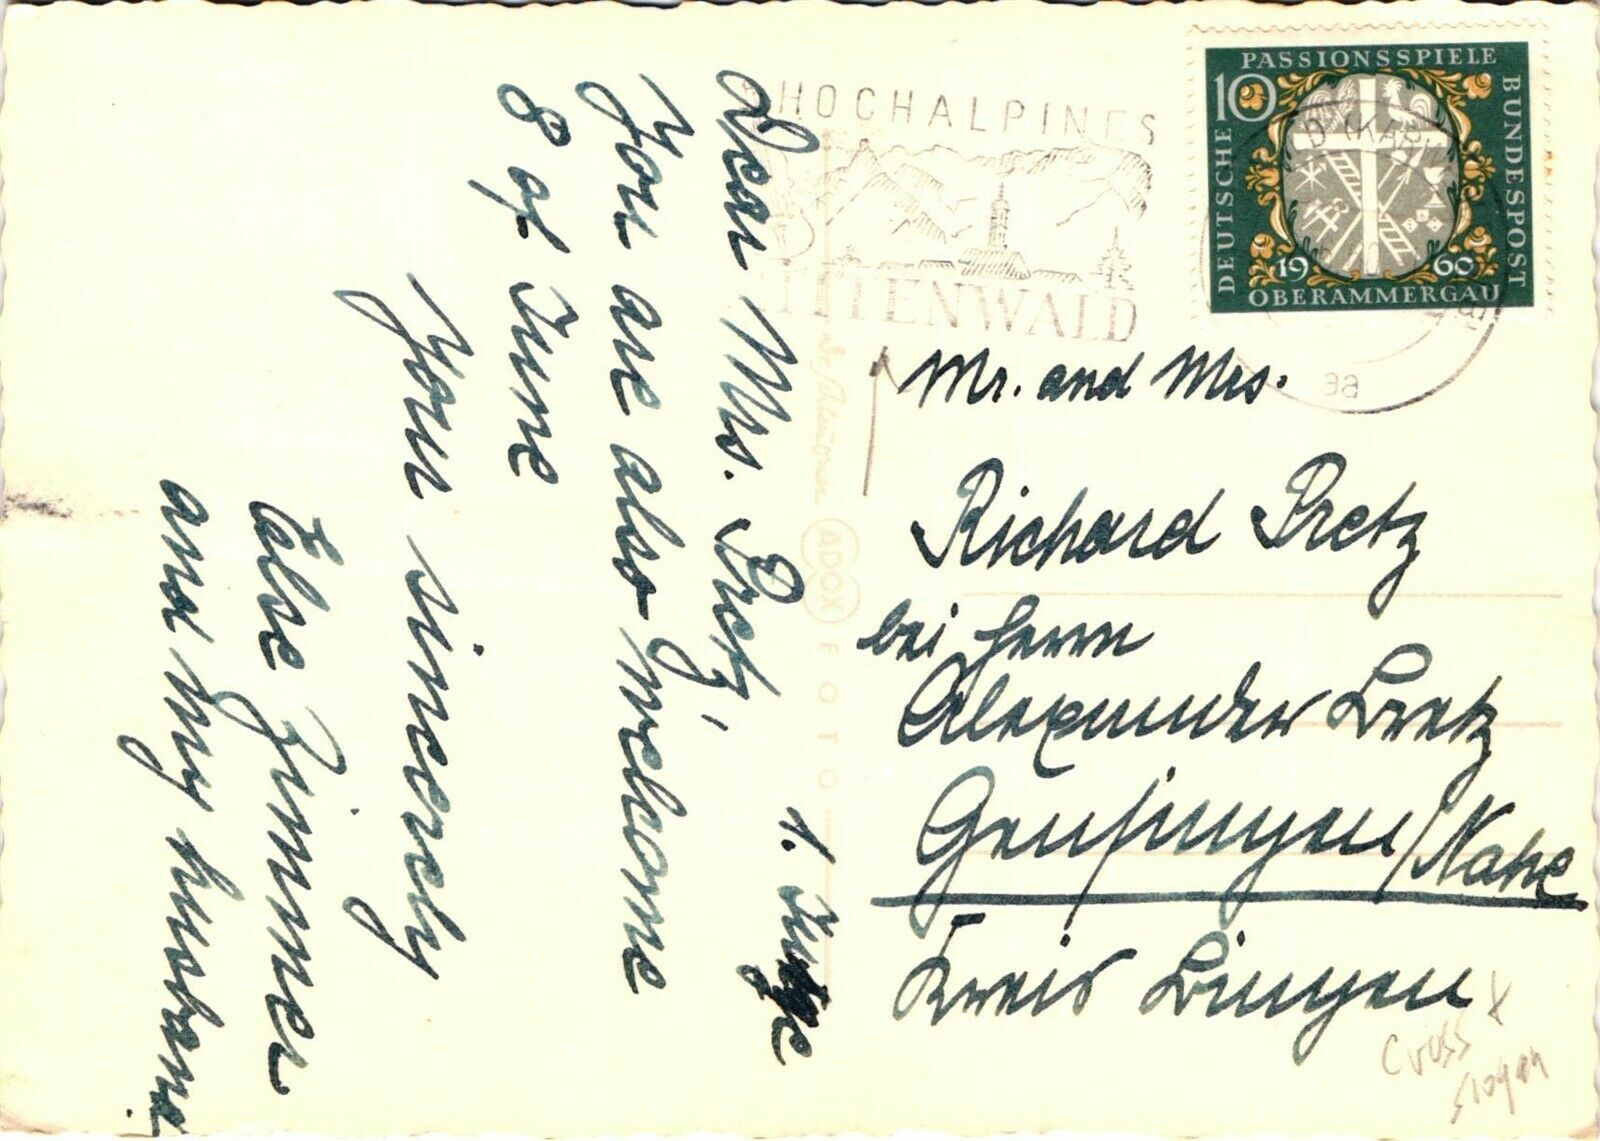 1. June
Dear Mrs. Pretz,
You are also welcome
8 of June
Your sincerely
Else Zimmer
and my husband.
HOCHALPINES
MITTENWALD
PASSIONSSPIELE
10
DEUTSCHE BUNDESPOST
1960
OBERAMMERGAU
aa
Mr. and Mrs.
Richard Pretz
bei Herrn
Alexander Pretz
Gensingen/Nahe
Kreis Bingen
ADOX FOTO
Cross X
slogan